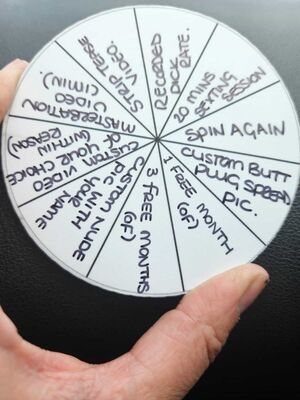 RECORDED
DICK
RATE.
20 MINS
SEXTING
SESSION
SPIN AGAIN
CUSTOM BUTT
PLUG SPREAD
PIC.
1 FREE MONTH
(OF)
3 FREE MONTHS
(OF)
CUSTOM NUDE
PIC WITH
YOUR NAME
CUSTOM VIDEO
OF YOUR CHOICE
(WITHIN
REASON)
MASTERBATION
VIDEO
(1MIN).
STRIP TEASE
VIDEO.